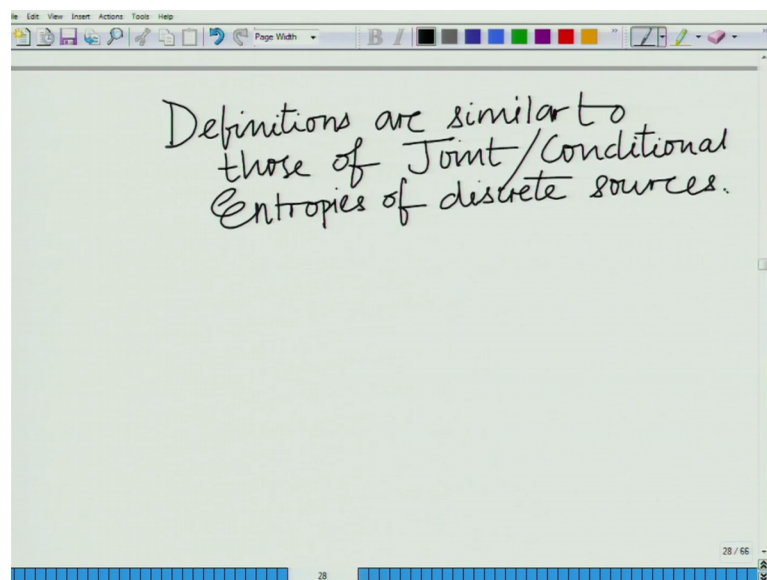 le Edit View Insert Actions Tools Help
Page Width B I
Definitions are similar to
those of Joint/Conditional
Entropies of discrete sources.
28 / 66
28